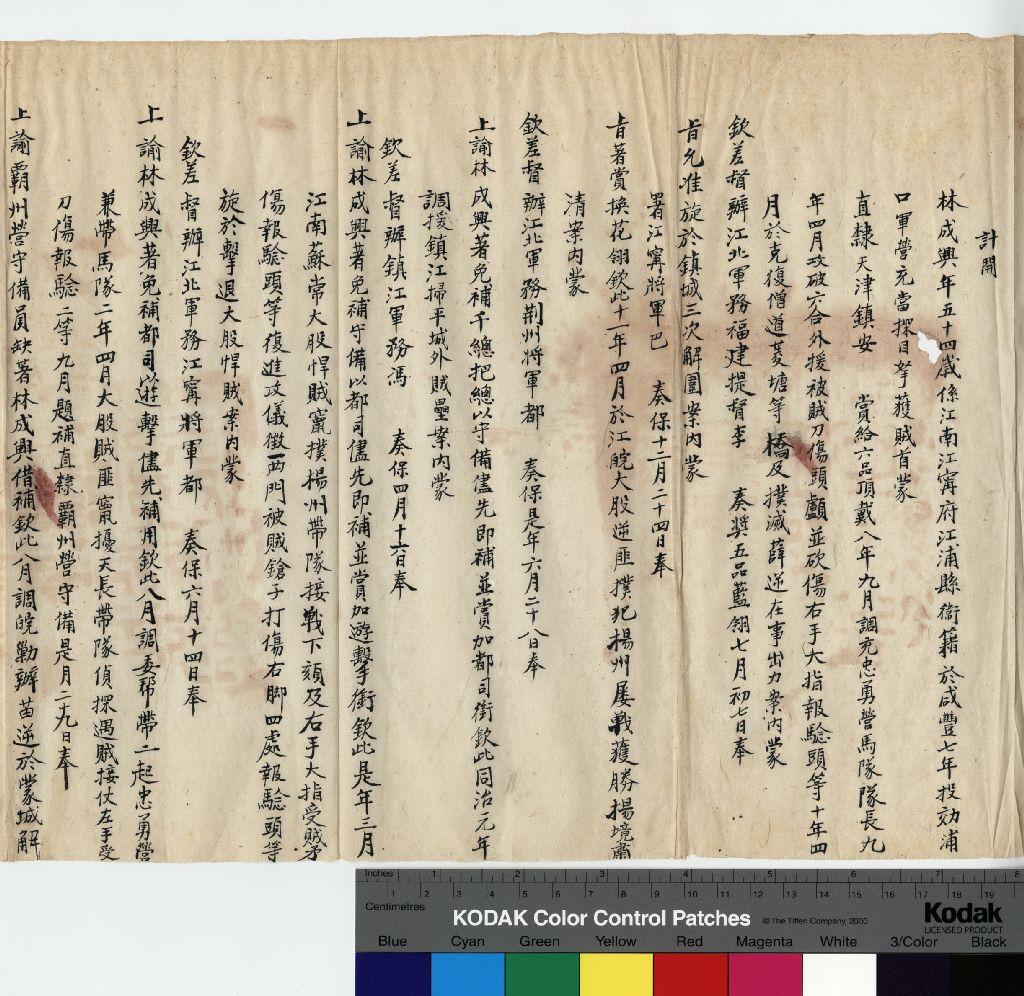 計開
林成興年五十四歲係江南江甯府江浦縣衛籍於咸豐七年投効浦
口軍營充當探目孥獲賊首蒙
直隸天津鎮安 賞給六品頂戴八年九月調充忠勇營馬隊隊長九
年四月攻破六合外援被賊刀傷頭顱並砍傷右手大指報驗頭等十年四
月於克復僧道菱塘等橋及撲滅薛逆在事出力案內蒙
欽差督辦江北軍務福建提督李 奏獎五品藍翎七月初七日奉
旨允准旋於鎮城三次解圍案內蒙
署江甯將軍巴 奏保十二月二十四日奉
旨著賞換花翎欽此十一年四月於江皖大股逆匪撲犯揚州屡戰獲勝揚境肅
清案內蒙
欽差督辦江北軍務荆州將軍都 奏保是年六月二十八日奉
上諭林成興著免補千總把總以守備儘先即補並賞加都司銜欽此同治元年
調援鎮江掃平城外賊壘案內蒙
欽差督辦鎮江軍務馮 奏保四月十六日奉
上諭林成興著免補守備以都司儘先即補並賞加遊擊銜欽此是年三月
江南蘇常大股悍賊竄撲揚州帶隊接戰下頦及右手大指受賊矛
傷報驗頭等復進攻儀徵西門被賊鎗子打傷右脚四處報驗頭等
旋於擊退大股悍賊案內蒙
欽差督辦江北軍務江甯將軍都 奏保六月十四日奉
上諭林成興著免補都司以遊擊儘先補用欽此八月調委帮帶二起忠勇營
兼帶馬隊二年四月大股賊匪竄擾天長帶隊偵探遇賊接仗左手受
刀傷報驗二等九月題補直隸霸州營守備是月二十九日奉
上諭霸州營守備員缺著林成興借補欽此八月調皖勦辦苗逆於蒙城解
Inches 1 2 3 4 5 6 7 8
Centimetres 1 2 3 4 5 6 7 8 9 10 11 12 13 14 15 16 17 18 19
KODAK Color Control Patches © The Tiffen Company, 2000 Kodak
LICENSED PRODUCT
Blue Cyan Green Yellow Red Magenta White 3/Color Black